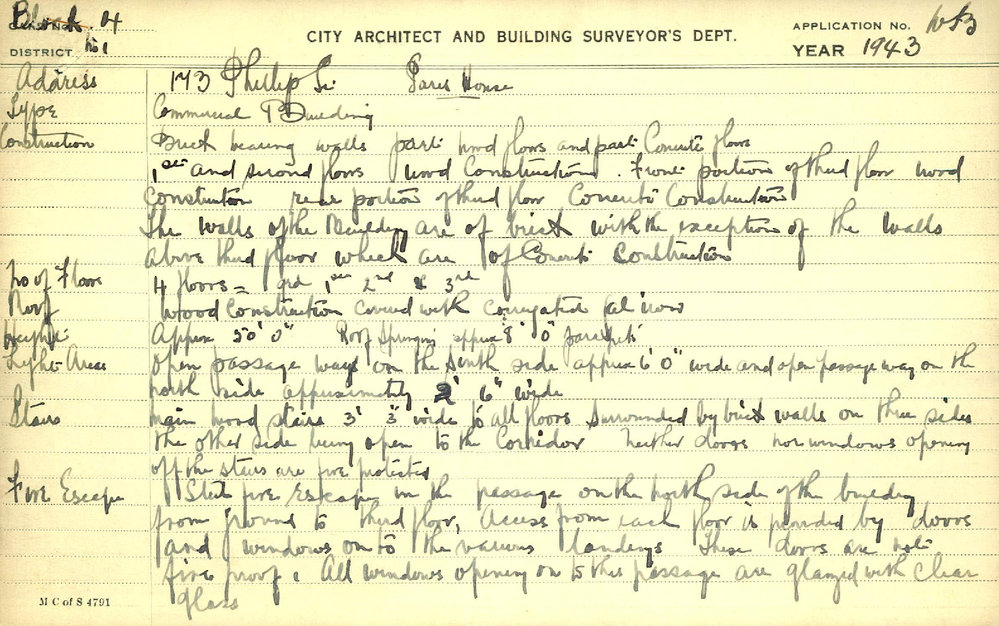 Block 04
CARD NO.
DISTRICT No 1
CITY ARCHITECT AND BUILDING SURVEYOR'S DEPT.
APPLICATION No.
YEAR 1943
Address 173 Phillip St. House
Type Commercial Building
Construction Brick bearing walls part wood floors and part Concrete floors
1st and second floors wood Construction. Front portion of third floor wood
Construction rear portion of third floor Concrete Construction
The walls of the Building are of brick with the exception of the walls
above third floor which are of Concrete Construction
No of Floors 4 floors = grd 1st 2nd & 3rd
Roof Wood Construction covered with corrugated gal iron
Height Approx 50' 0" Roof Springing approx 8' 0"
Light Areas Open passage ways on the South side approx 6' 0" wide and open passage way on the
north side approximately 2' 6" wide
Stairs Main wood stairs 3' 3" wide to all floors surrounded by brick walls on three sides
the other side being open to the Corridor neither doors nor windows opening
off the stairs are fire protected
Fire Escape Steel fire Escape in the passage on the north side of the building
from ground to third floor, Access from each floor is provided by doors
and windows on to the various landings These doors are not
fire proof. All windows opening on to this passage are glazed with Clear
Glass
M C of S 4791